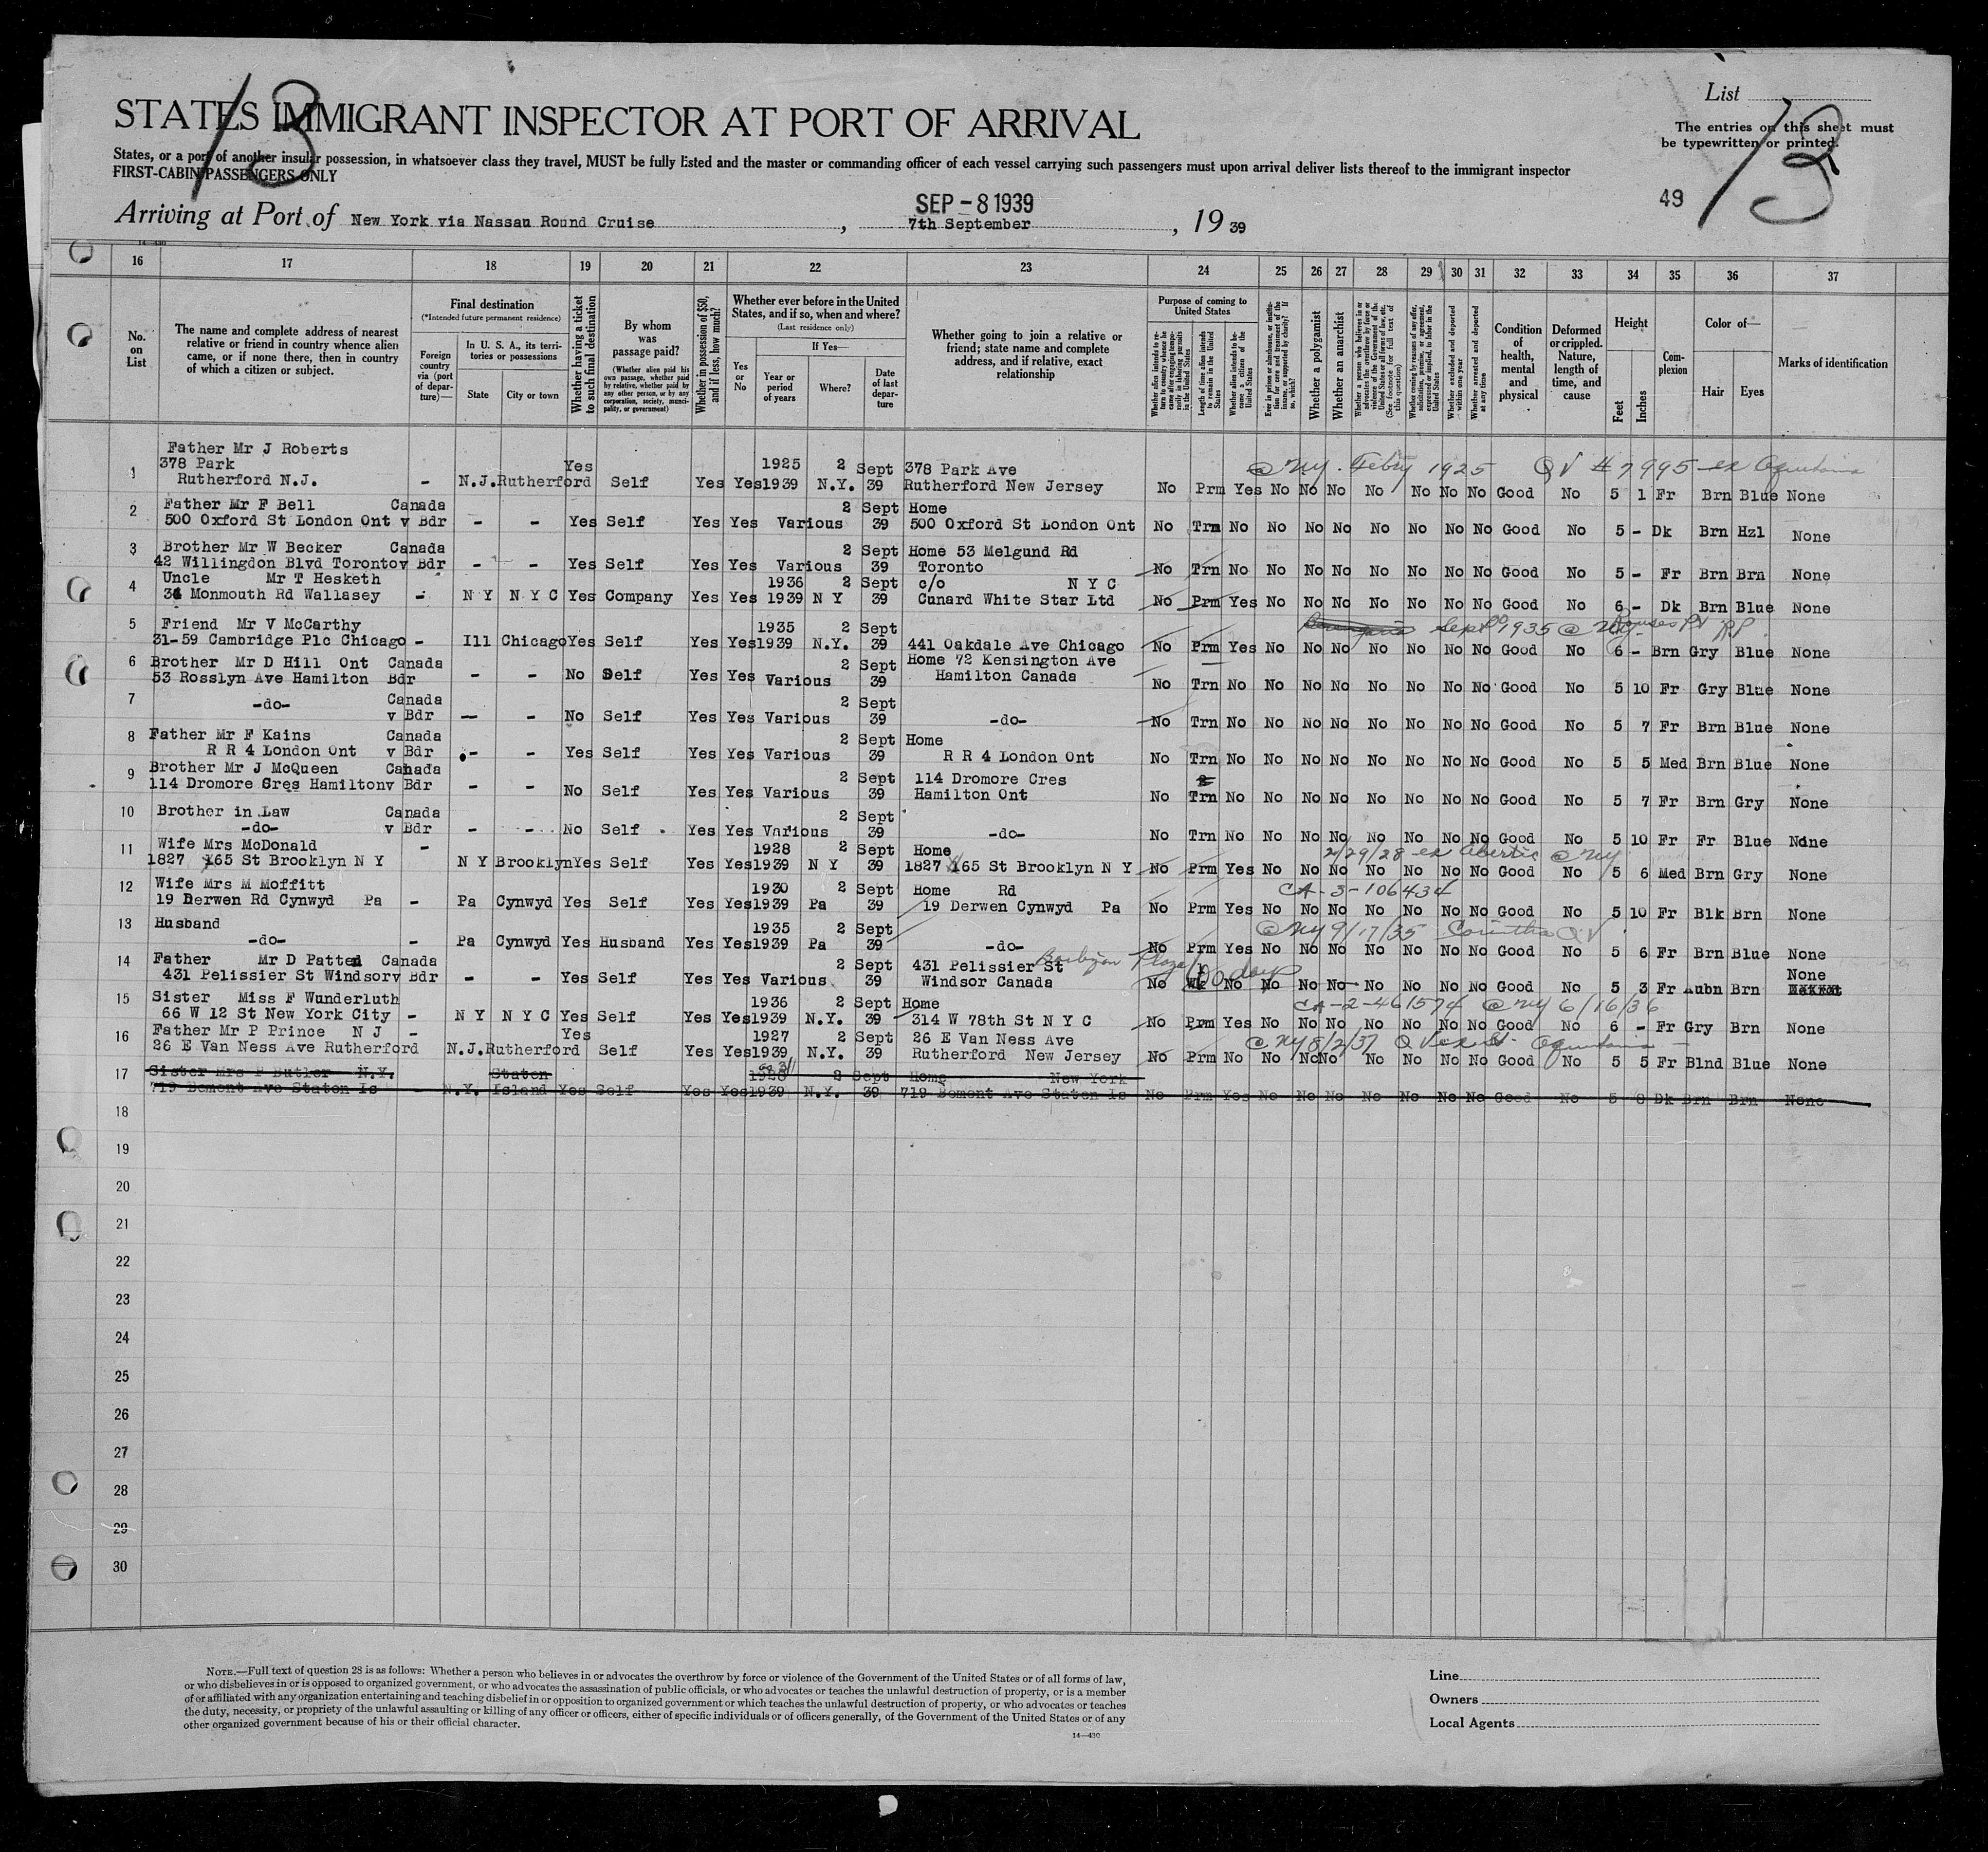 List
13
STATES IMMIGRANT INSPECTOR AT PORT OF ARRIVAL
The entries on this sheet must
be typewritten or printed.
13
States, or a port of another insular possession, in whatsoever class they travel, MUST be fully listed and the master or commanding officer of each vessel carrying such passengers must upon arrival deliver lists thereof to the immigrant inspector
FIRST-CABIN PASSENGERS ONLY
49
SEP -8 1939
Arriving at Port of New York via Nassau Round Cruise, 7th September, 19 39
14-430
16 17 18 19 20 21 22 23 24 25 26 27 28 29 30 31 32 33 34 35 36 37
No. on List
The name and complete address of nearest relative or friend in country whence alien came, or if none there, then in country of which a citizen or subject.
Final destination
(*Intended future permanent residence)
Foreign country via (port of departure)—
In U. S. A., its territories or possessions
State
City or town
Whether having a ticket to such final destination
By whom was passage paid?
(Whether alien paid his own passage, whether paid by relative, whether paid by any other person, or by any corporation, society, municipality, or government)
Whether in possession of $50, and if less, how much?
Whether ever before in the United States, and if so, when and where?
(Last residence only)
Yes or No
If Yes—
Year or period of years
Where?
Date of last departure
Whether going to join a relative or friend; state name and complete address, and if relative, exact relationship
Purpose of coming to United States
Whether alien intends to return to country whence he came after engaging temporarily in laboring pursuits in the United States
Length of time alien intends to remain in the United States
Whether alien intends to become a citizen of the United States
Ever in prison or almshouse, or institution for care and treatment of the insane, or supported by charity? If so, which?
Whether a polygamist
Whether an anarchist
Whether a person who believes in or advocates the overthrow by force or violence of the Government of the United States or all forms of law, etc. (See footnote for full text of this question)
Whether coming by reasons of any offer, solicitation, promise, or agreement, expressed or implied, to labor in the United States
Whether excluded and deported within one year
Whether arrested and deported at any time
Condition of health, mental and physical
Deformed or crippled. Nature, length of time, and cause
Height
Feet
Inches
Complexion
Color of—
Hair
Eyes
Marks of identification
Father Mr J Roberts
378 Park Yes 1925 2 Sept 378 Park Ave @ NY. Feby 1925 QV # 7995 ex Aquitania
1 Rutherford N.J. - N.J. Rutherford Self Yes Yes 1939 N.Y. 39 Rutherford New Jersey No Prm Yes No No No No No No No Good No 5 1 Fr Brn Blue None
2 Father Mr F Bell Canada 2 Sept Home
500 Oxford St London Ont v Bdr - - Yes Self Yes Yes Various 39 500 Oxford St London Ont No Trn No No No No No No No No Good No 5 - Dk Brn Hzl None
3 Brother Mr W Becker Canada 2 Sept Home 53 Melgund Rd
42 Willingdon Blvd Toronto v Bdr - - Yes Self Yes Yes Various 39 Toronto No Trn No No No No No No No No Good No 5 - Fr Brn Brn None
4 Uncle Mr T Hesketh 1936 2 Sept c/o N Y C
34 Monmouth Rd Wallasey - N Y N Y C Yes Company Yes Yes 1939 N Y 39 Cunard White Star Ltd No Prm Yes No No No No No No No Good No 6 - Dk Brn Blue None
5 Friend Mr V McCarthy 1935 2 Sept Sept 1935 @ NY
31-59 Cambridge Plc Chicago - Ill Chicago Yes Self Yes Yes 1939 N.Y. 39 441 Oakdale Ave Chicago No Prm Yes No No No No No No No Good No 6 - Brn Gry Blue None
6 Brother Mr D Hill Ont Canada 2 Sept Home 72 Kensington Ave
53 Rosslyn Ave Hamilton Bdr - - No Self Yes Yes Various 39 Hamilton Canada No Trn No No No No No No No No Good No 5 10 Fr Gry Blue None
7 -do- Canada 2 Sept
v Bdr - - No Self Yes Yes Various 39 -do- No Trn No No No No No No No No Good No 5 7 Fr Brn Blue None
8 Father Mr F Kains Canada 2 Sept Home
R R 4 London Ont v Bdr - - Yes Self Yes Yes Various 39 R R 4 London Ont No Trn No No No No No No No No Good No 5 5 Med Brn Blue None
9 Brother Mr J McQueen Canada 2 Sept 114 Dromore Cres
114 Dromore Cres Hamilton v Bdr - - No Self Yes Yes Various 39 Hamilton Ont No Trn No No No No No No No No Good No 5 7 Fr Brn Gry None
10 Brother in Law Canada 2 Sept
-do- v Bdr - - No Self Yes Yes Various 39 -do- No Trn No No No No No No No No Good No 5 10 Fr Fr Blue None
11 Wife Mrs McDonald - 1928 2 Sept Home 2/29/28 ex @ NY
1827 165 St Brooklyn N Y N Y Brooklyn Yes Self Yes Yes 1939 N Y 39 1827 165 St Brooklyn N Y No Prm Yes No No No No No No No Good No 5 6 Med Brn Gry None
12 Wife Mrs M Moffitt 1930 2 Sept Home Rd CA-3-106434
19 Derwen Rd Cynwyd Pa - Pa Cynwyd Yes Self Yes Yes 1939 Pa 39 19 Derwen Cynwyd Pa No Prm Yes No No No No No No No Good No 5 10 Fr Blk Brn None
13 Husband 1935 2 Sept @ NY 9/17/35 QV
-do- - Pa Cynwyd Yes Husband Yes Yes 1939 Pa 39 -do- No Prm Yes No No No No No No No Good No 5 6 Fr Brn Blue None
14 Father Mr D Patten Canada 2 Sept 431 Pelissier St Barbizon Plaza 60 days None
431 Pelissier St Windsor v Bdr - - Yes Self Yes Yes Various 39 Windsor Canada No Wk No No No No No No No No Good No 5 3 Fr Aubn Brn
15 Sister Miss F Wunderluth 1936 2 Sept Home CA-2-461574 @ NY 6/16/36
66 W 12 St New York City - N Y N Y C Yes Self Yes Yes 1939 N.Y. 39 314 W 78th St N Y C No Prm Yes No No No No No No No Good No 6 - Fr Gry Brn None
16 Father Mr P Prince N J - Yes 1927 2 Sept 26 E Van Ness Ave @ NY 8/2/37 QV ex Aquitania
26 E Van Ness Ave Rutherford N.J. Rutherford Self Yes Yes 1939 N.Y. 39 Rutherford New Jersey No Prm No No No No No No No No Good No 5 5 Fr Blnd Blue None
17 Sister Mrs P Butler N.Y. Staten 2 Sept Home New York
719 Bement Ave Staten Is - N.Y. Island Yes Self Yes Yes 1939 N.Y. 39 719 Bement Ave Staten Is No Prm Yes No No No No No No No Good No 5 8 Dk Brn Brn None
18
19
20
21
22
23
24
25
26
27
28
29
30
NOTE.—Full text of question 28 is as follows: Whether a person who believes in or advocates the overthrow by force or violence of the Government of the United States or of all forms of law,
or who disbelieves in or is opposed to organized government, or who advocates the assassination of public officials, or who advocates or teaches the unlawful destruction of property, or is a member
of or affiliated with any organization entertaining and teaching disbelief in or opposition to organized government or which teaches the unlawful destruction of property, or who advocates or teaches
the duty, necessity, or propriety of the unlawful assaulting or killing of any officer or officers, either of specific individuals or of officers generally, of the Government of the United States or of any
other organized government because of his or their official character.
14—430
Line
Owners
Local Agents